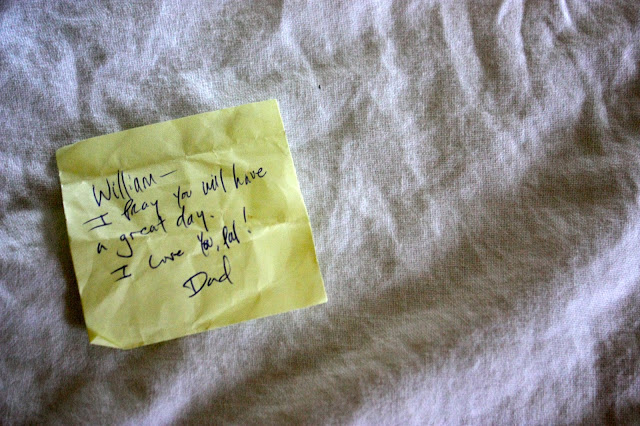 William—
I pray you will have
a great day.
I love you, pal!
Dad